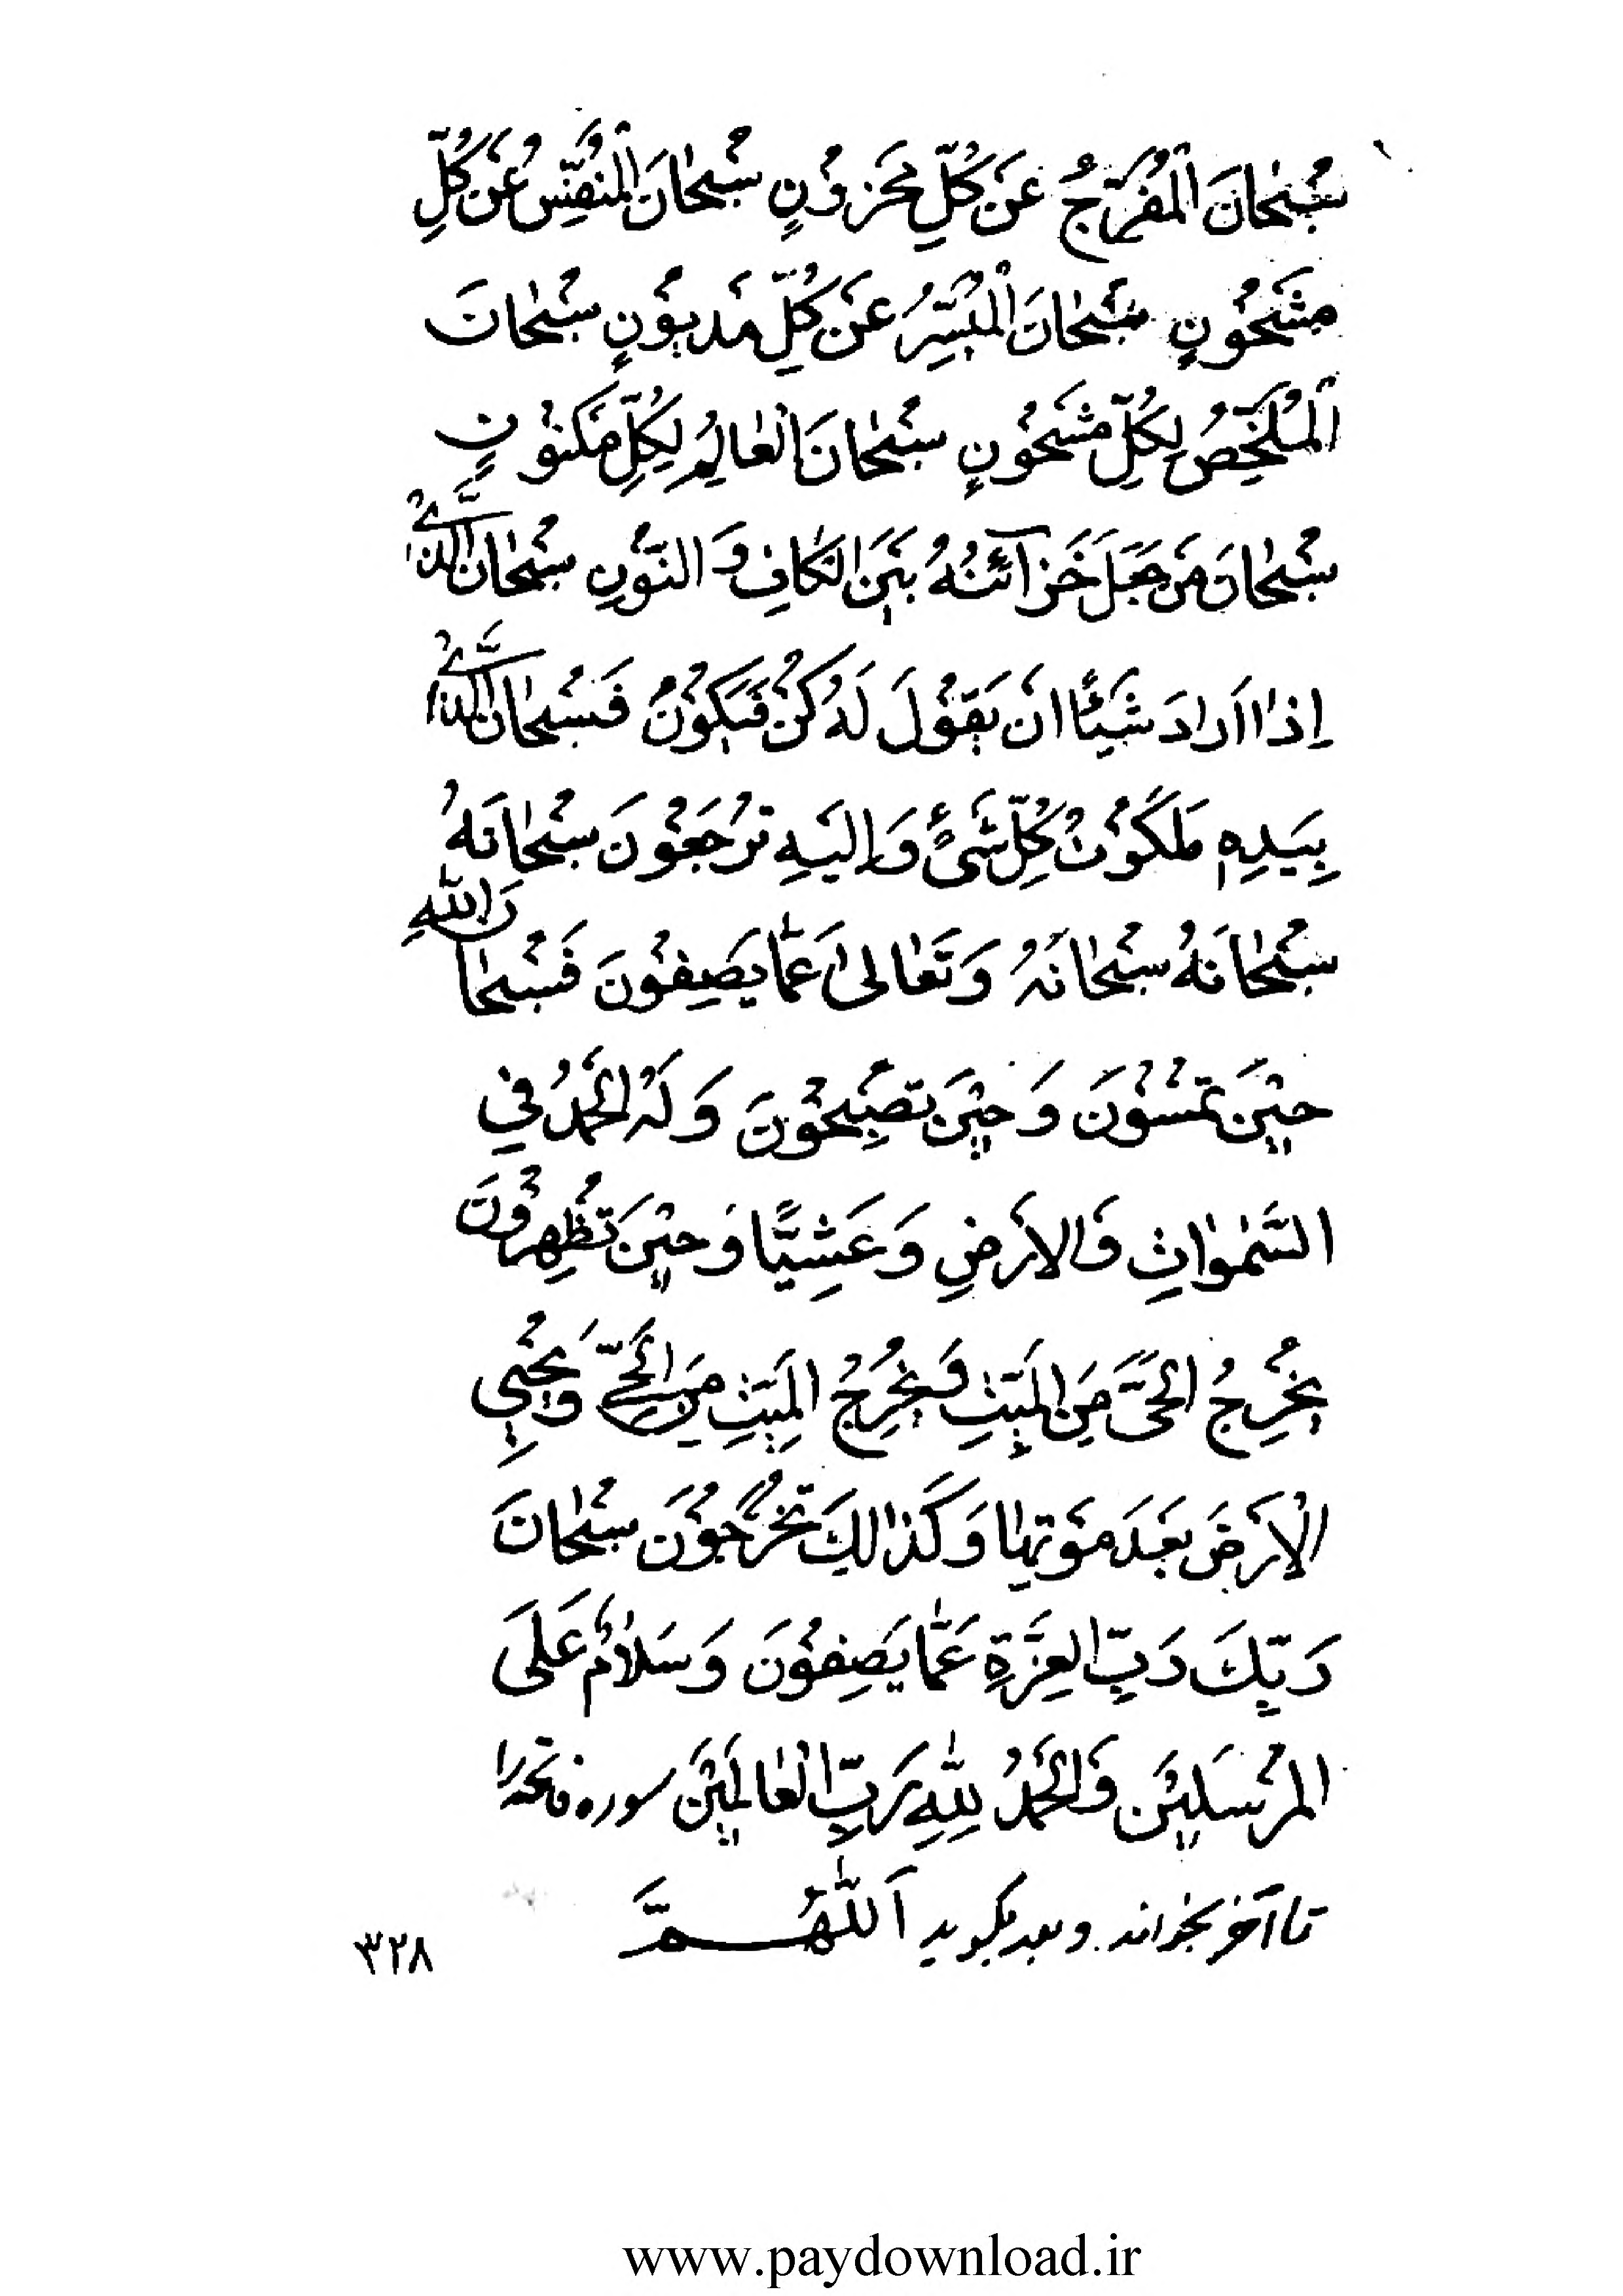 سُبْحٰانَ الْمُفَرِّجُ عَنْ كُلِّ مَحْزُوْنٍ سُبْحٰانَ الْمُنَفِّسُ عَنْ كُلِّ
مَشْحُوْنٍ سُبْحٰانَ الْمُيَسِّرُ عَنْ كُلِّ مَدْيُوْنٍ سُبْحٰانَ
الْمُلَخِّصُ لِكُلِّ مَشْحُوْنٍ سُبْحٰانَ الْعٰالِمُ لِكُلِّ مَكْنُوْنٍ
سُبْحٰانَ مَنْ جَعَلَ خَزَآئِنُهُ بَيْنَ الْكٰافِ وَ النُّوْنِ سُبْحٰانَ الَّذِيْ
اِذٰا اَرٰادَ شَيْئًا اَنْ يَقُوْلَ لَهُ كُنْ فَيَكُوْنُ فَسُبْحٰانَ الَّذِيْ
بِيَدِهِ مَلَكُوْتُ كُلِّ شَيْءٍ وَ اِلَيْهِ تُرْجَعُوْنَ سُبْحٰانَهُ
سُبْحٰانَهُ سُبْحٰانَهُ وَ تَعٰالىٰ عَمّٰا يَصِفُوْنَ فَسُبْحٰانَ اللّٰهِ
حِيْنَ تُمْسُوْنَ وَ حِيْنَ تُصْبِحُوْنَ وَ لَهُ الْحَمْدُ فِي
السَّمٰوٰاتِ وَ الْاَرْضِ وَ عَشِيًّا وَ حِيْنَ تُظْهِرُوْنَ
يُخْرِجُ الْحَىَّ مِنَ الْمَيِّتِ وَ يُخْرِجُ الْمَيِّتِ مِنَ الْحَيِّ وَ يُحْيِي
الْاَرْضَ بَعْدَ مَوْتِهٰا وَ كَذٰالِكَ تُخْرَجُوْنَ سُبْحٰانَ
رَبِّكَ رَبِّ الْعِزَّةِ عَمّٰا يَصِفُوْنَ وَ سَلاٰمٌ عَلَى
الْمُرْسَلِيْنَ وَ الْحَمْدُ لِلّٰهِ رَبِّ الْعٰالَمِيْنَ سوره فاتحه را
تا آخر بخواند و بعد بگويد اَللّٰهُمَّ
٣٢٨
www.paydownload.ir